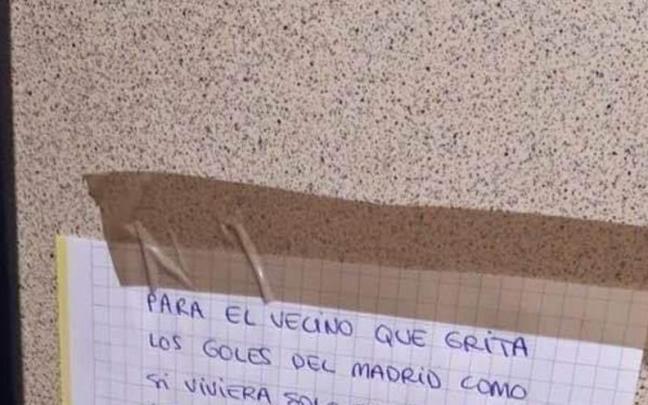 PARA EL VECINO QUE GRITA
LOS GOLES DEL MADRID COMO
SI VIVIERA